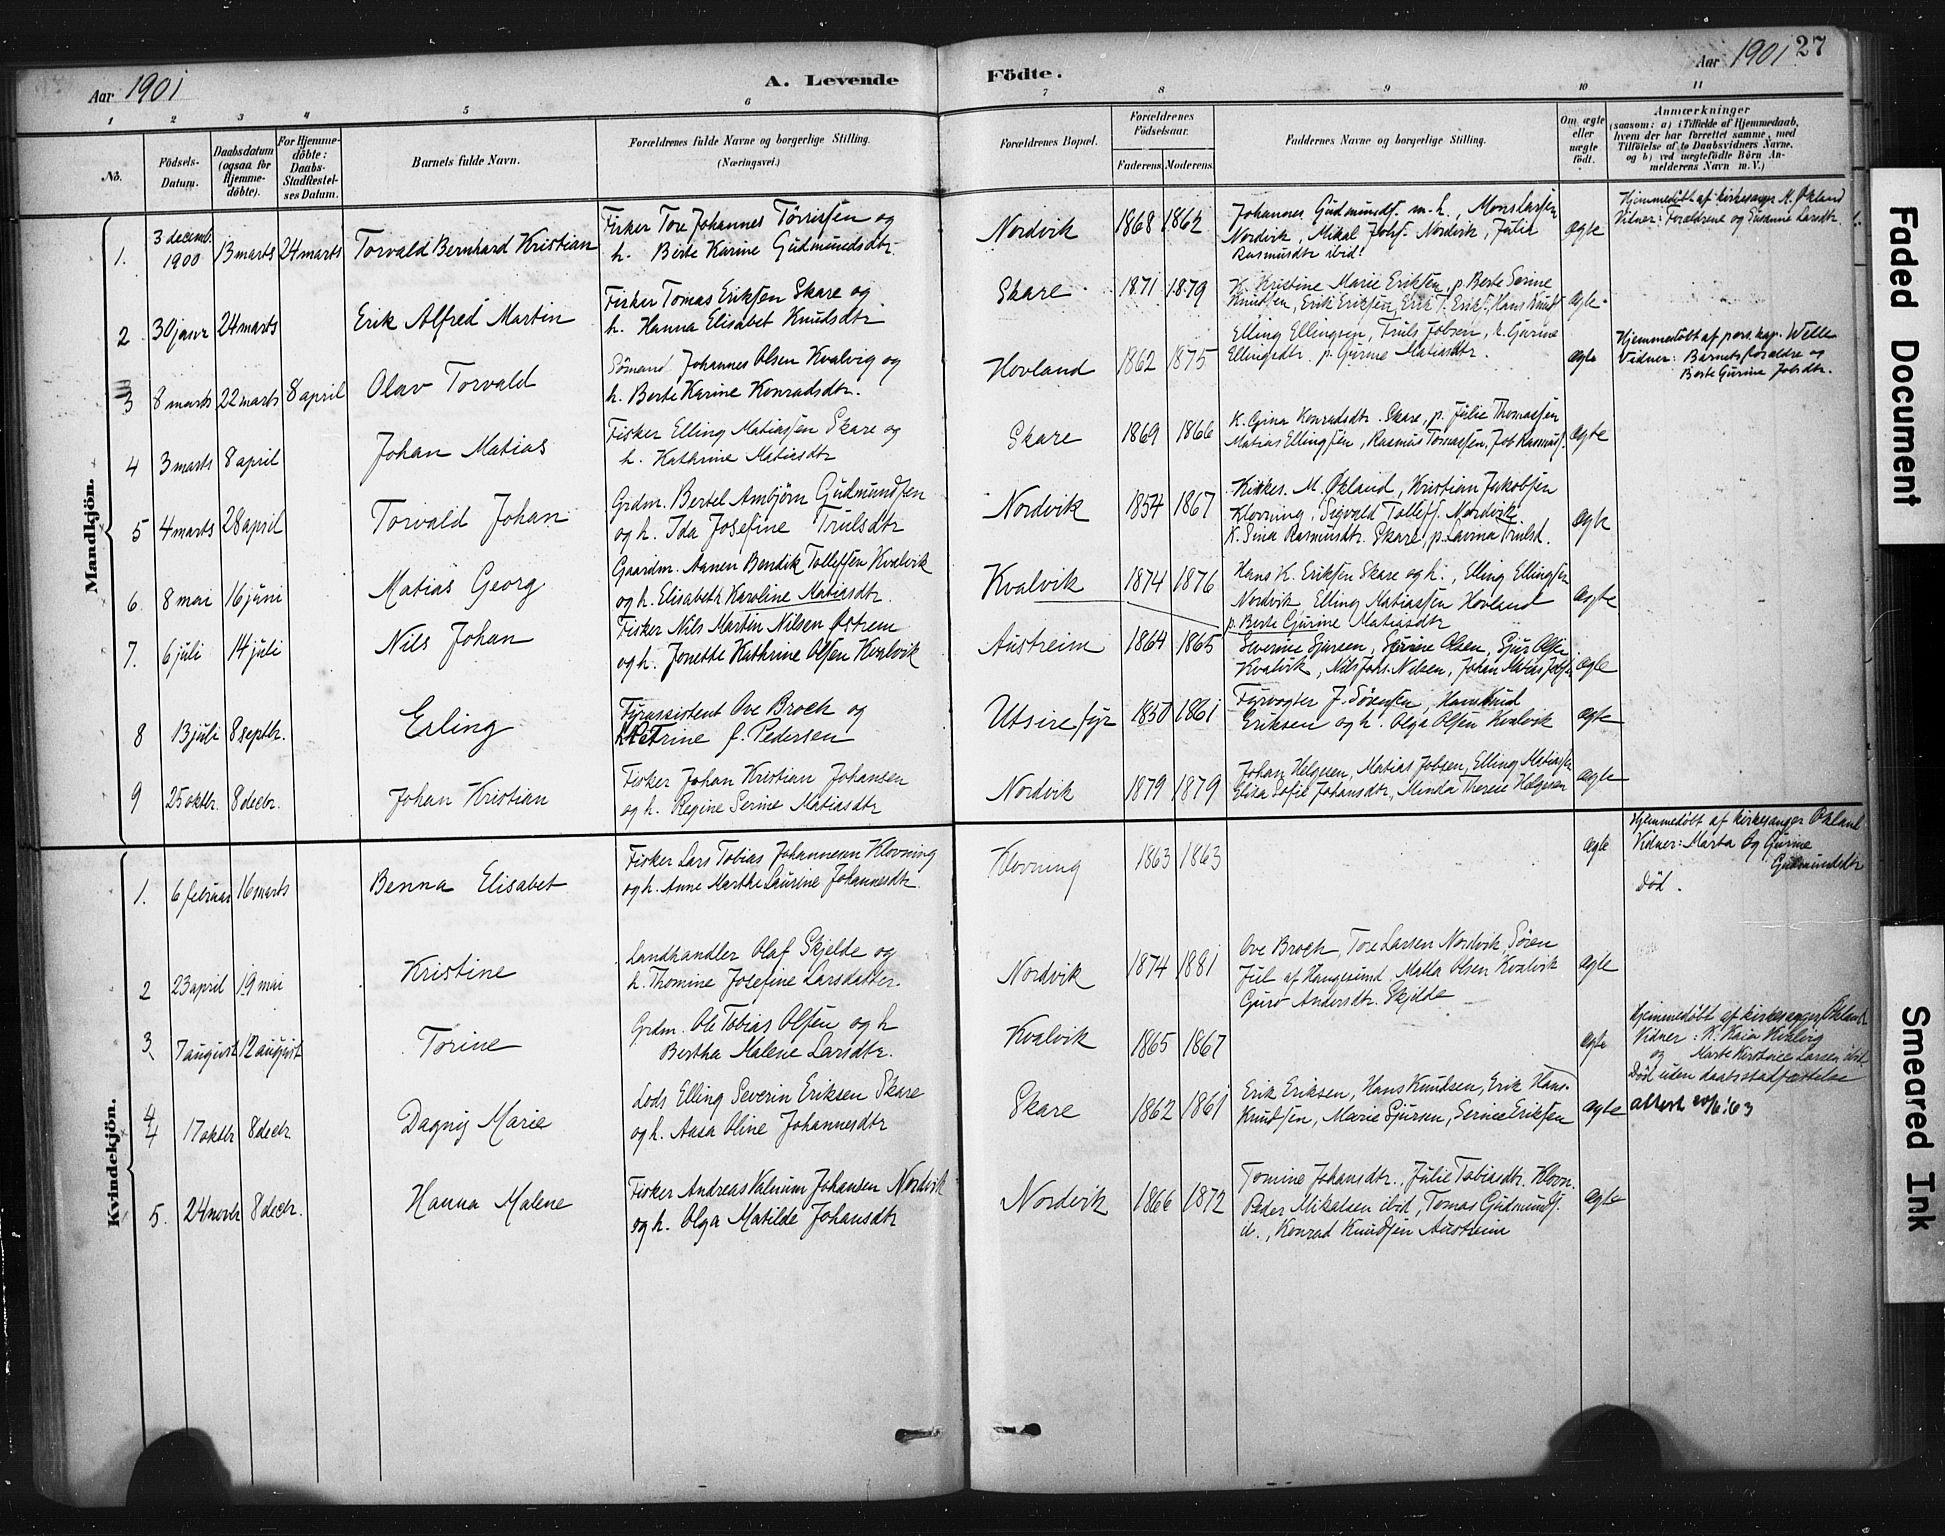 Aar 1901
A. Levende Födte.
Aar 1901
27
1 2 3 4 5 6 7 8 9 10 11
No.
Födsels-Datum.
Daabsdatum (ogsaa for Hjemme-döbte).
For Hjemme-döbte: Daabs-Stadfæstel-ses Datum.
Barnets fulde Navn.
Forældrenes fulde Navne og borgerlige Stilling.
(Næringsvei.)
Forældrenes Bopæl.
Forældrenes Födselsaar.
Faderens. Moderens.
Faddernes Navne og borgerlige Stilling.
Om ægte eller uægte födt.
Anmærkninger
(saasom: a) i Tilfælde af Hjemmedaab, hvem der har forrettet samme, med Tilföielse af to Daabsvidners Navne, og b) ved uægtefödte Börn An-melderens Navn m. V.)
Mandkjön.
1. 3 decemb. 1900 13 marts 24 marts Torvald Bernhard Kristian
Fisker Tore Johannes Törrissen og
h. Berte Karine Gudmundsdtr.
Nordvik 1868 1862
Johannes Gudmunds. m. h., Mons Larsen
Nordvik, Mikal Johs. Nordvik, Julie
Rasmusdtr ibid.
ægte
Hjemmedöbt af kirkesanger M. Økland
Vidner: Forældrene og Susanne Larsdtr.
2 30 janr 24 marts Erik Alfred Martin
Fisker Tomas Eriksen Skare og
h. Hanna Elisabet Knudsdtr
Skare 1871 1879
K. Kristine Marie Eriksen, p. Berte Serine
Knudsen, Erik Eriksen, Erik T. Eriks., Hans Knuds
ægte.
3 8 marts 22 marts 8 april Olav Torvald
Sömand Johannes Olsen Kvalvig og
h. Berte Karine Konradsdtr.
Hovland 1862 1875
Elling Ellingsen, Truls Jobsen, k. Gurine
Ellingsdtr. p. Gurine Matiasdtr.
ægte
Hjemmedöbt af pers. kap. Welle
Vidner: Barnets forældre og
Berte Gurine Jobsdtr.
4 3 marts 8 april Johan Matias
Fisker Elling Matiassen Skare og
h. Kathrine Matiasdtr
Skare 1869 1866
K. Gina Konradsdtr. Skare, p. Julie Thomassen
Matias Ellingsen, Rasmus Tomassen, Job Rasmuss.
ægte
5 4 marts 28 april Torvald Johan
Grdm. Bertel Ambjörn Gudmundsen
og h. Ida Josefine Trulsdtr
Nordvik 1854 1867
Kirkes. M. Økland, Kristian Jakobsen
Klovning, Sigvald Tollefs. Nordvik.
K. Sina Rasmusdtr. Skare, p. Lavina Trulsd.
ægte
6. 8 mai 16 juni Matias Georg
Gaardm. Aanen Bendik Tollefsen Kvalvik
og h. Elisabeth Karoline Matiasdtr.
Kvalvik 1874 1876
Hans K. Eriksen Skare og h., Elling Ellingsen
Nordvik, Elling Matiassen Hovland
p. Berte Gjurine Matiasdtr
ægte
7. 6 juli 14 juli Nils Johan
Fisker Nils Martin Nilsen Østrem
og h. Jonette Kathrine Olsen Kvalvik
Austreim 1864 1865
Severine Sjursen, Olsen, Sjur Olsen
Kvalvik, Nils Johs. Nilsen, Johan Matias
ægte
8 13 juli 8 septbr. Erling
Fyrassistent Ove Broch og
Katrine f. Pedersen
Utsire fyr 1850 1861
Fyrvogter J. Sörensen, Hans Knud
Eriksen og h. Olga Olsen Kvalvik
ægte
9 25 oktbr. 8 decbr. Johan Kristian
Fisker Johan Kristian Johansen
og h. Regine Serine Matiasdtr
Nordvik 1879 1879
Johan Helgesen, Matias Jobsen, Elling Matiass.
Elisa Sofie Johansdtr., Minda Therese Helgesen
ægte
Kvindekjön.
1. 6 februar 16 marts Benna Elisabet
Fisker Lars Tobias Johannesen Klovning
og h. Anne Marthe Laurine Johannesdtr.
Klovning 1863 1863
ægte
Hjemmedöbt af kirkesanger Økland.
Vidner: Marta og Gurine
Gudmundsdtr
Död.
2 23 april 19 mai Kristine
Landhandler Olaf Skjelde og
h. Thomine Josefine Larsdatter.
Nordvik 1874 1881
Ove Broch, Tore Larsen Nordvik, Sören
Juel af Haugesund, Malla Olsen Kvalvik
Guro Andersdtr. Skjelde
ægte
3 7 august 12 august Torine
Grdm. Ole Tobias Olsen og h
Bertha Malene Larsdtr.
Kvalvik 1865 1867
ægte
Hjemmedöbt af kirkesanger Økland
Vidner: K. Kaia Kvalvig
og Marte Kirstine Larsen ibid
Död uden daabsstadfæstelse
4 17 oktbr 8 decbr. Dagny Marie
Lods Elling Severin Eriksen Skare
og h. Aasa Oline Johannesdtr
Skare 1862 1861
Erik Eriksen, Hans Knudsen, Erik Hans.
Knudsen, Marie Sjursen, Serine Eriksen
ægte
attest 20/6 '63
5. 24 novbr 8 decbr. Hanna Malene
Fisker Andreas Johansen Nordvik
og h. Olga Matilde Johansdtr
Nordvik 1866 1872
Tomine Johansdtr., Julie Tobiasdtr. Klovn.
Peder Mikalsen ibid, Tomas Gudmunds.
ib., Konrad Knudsen Austreim
ægte
Faded Document
Smeared Ink